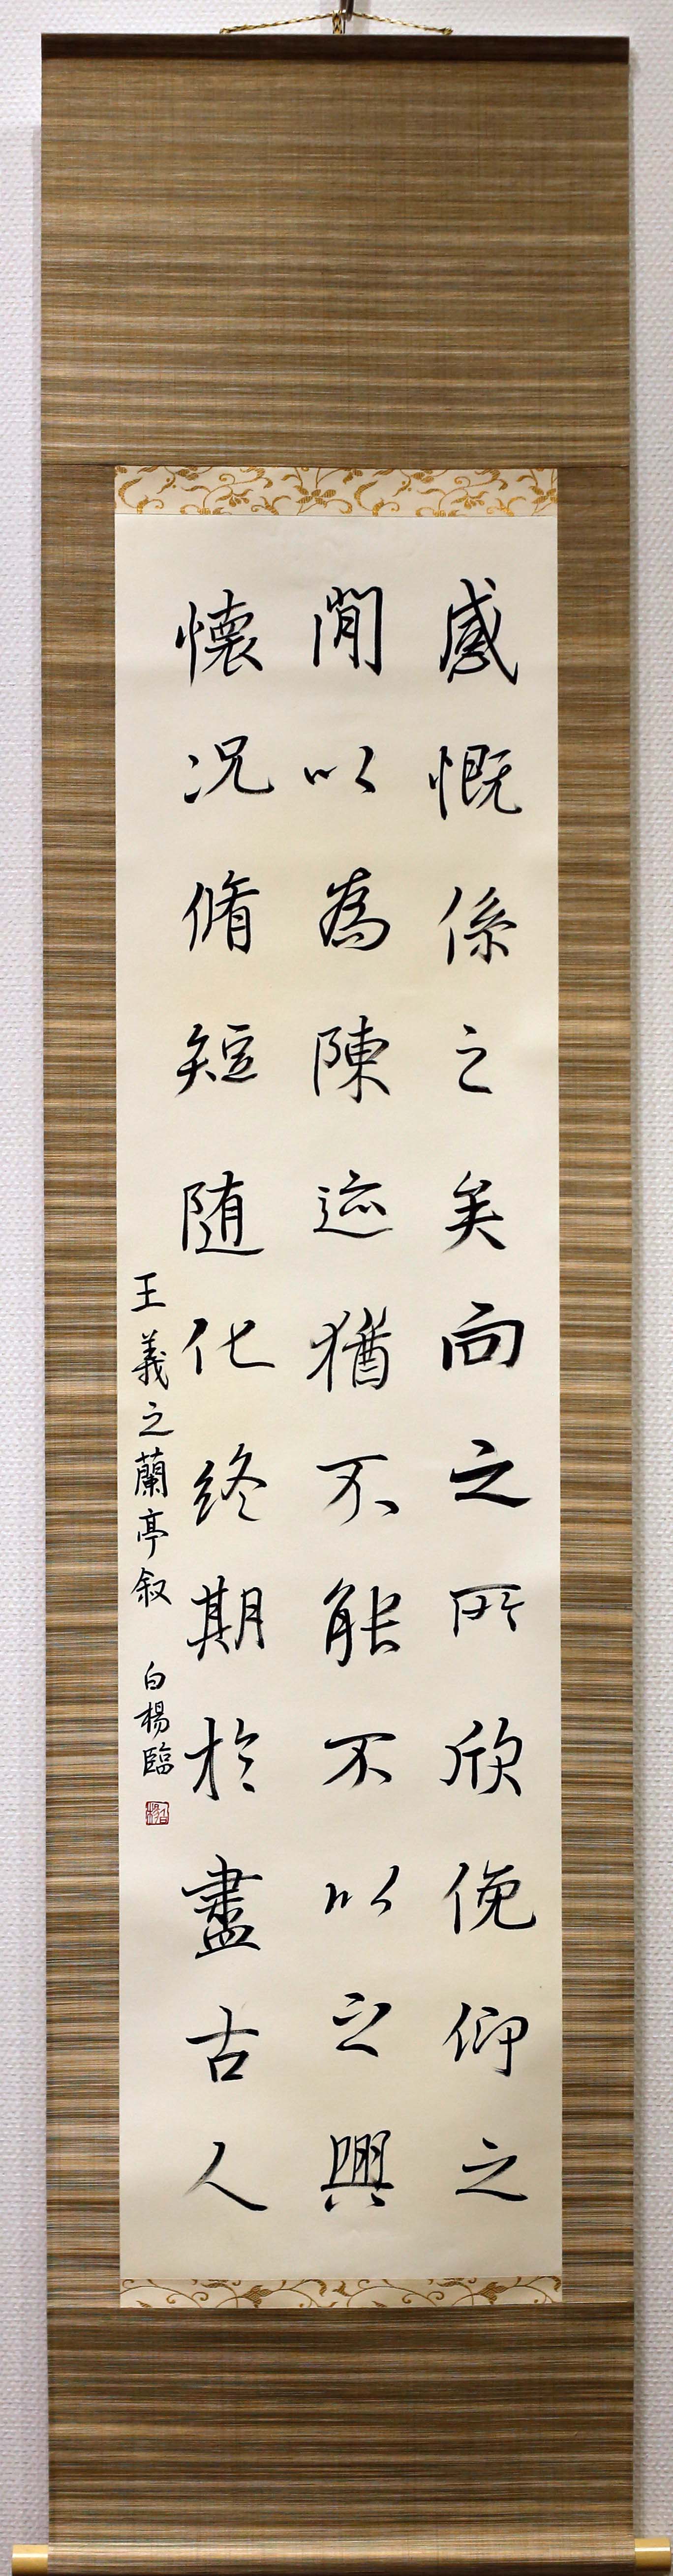 感慨係之矣向之所欣俛仰之
閒以為陳迹猶不能不以之興
懷況脩短随化終期於盡古人
王義之蘭亭叙 白楊臨